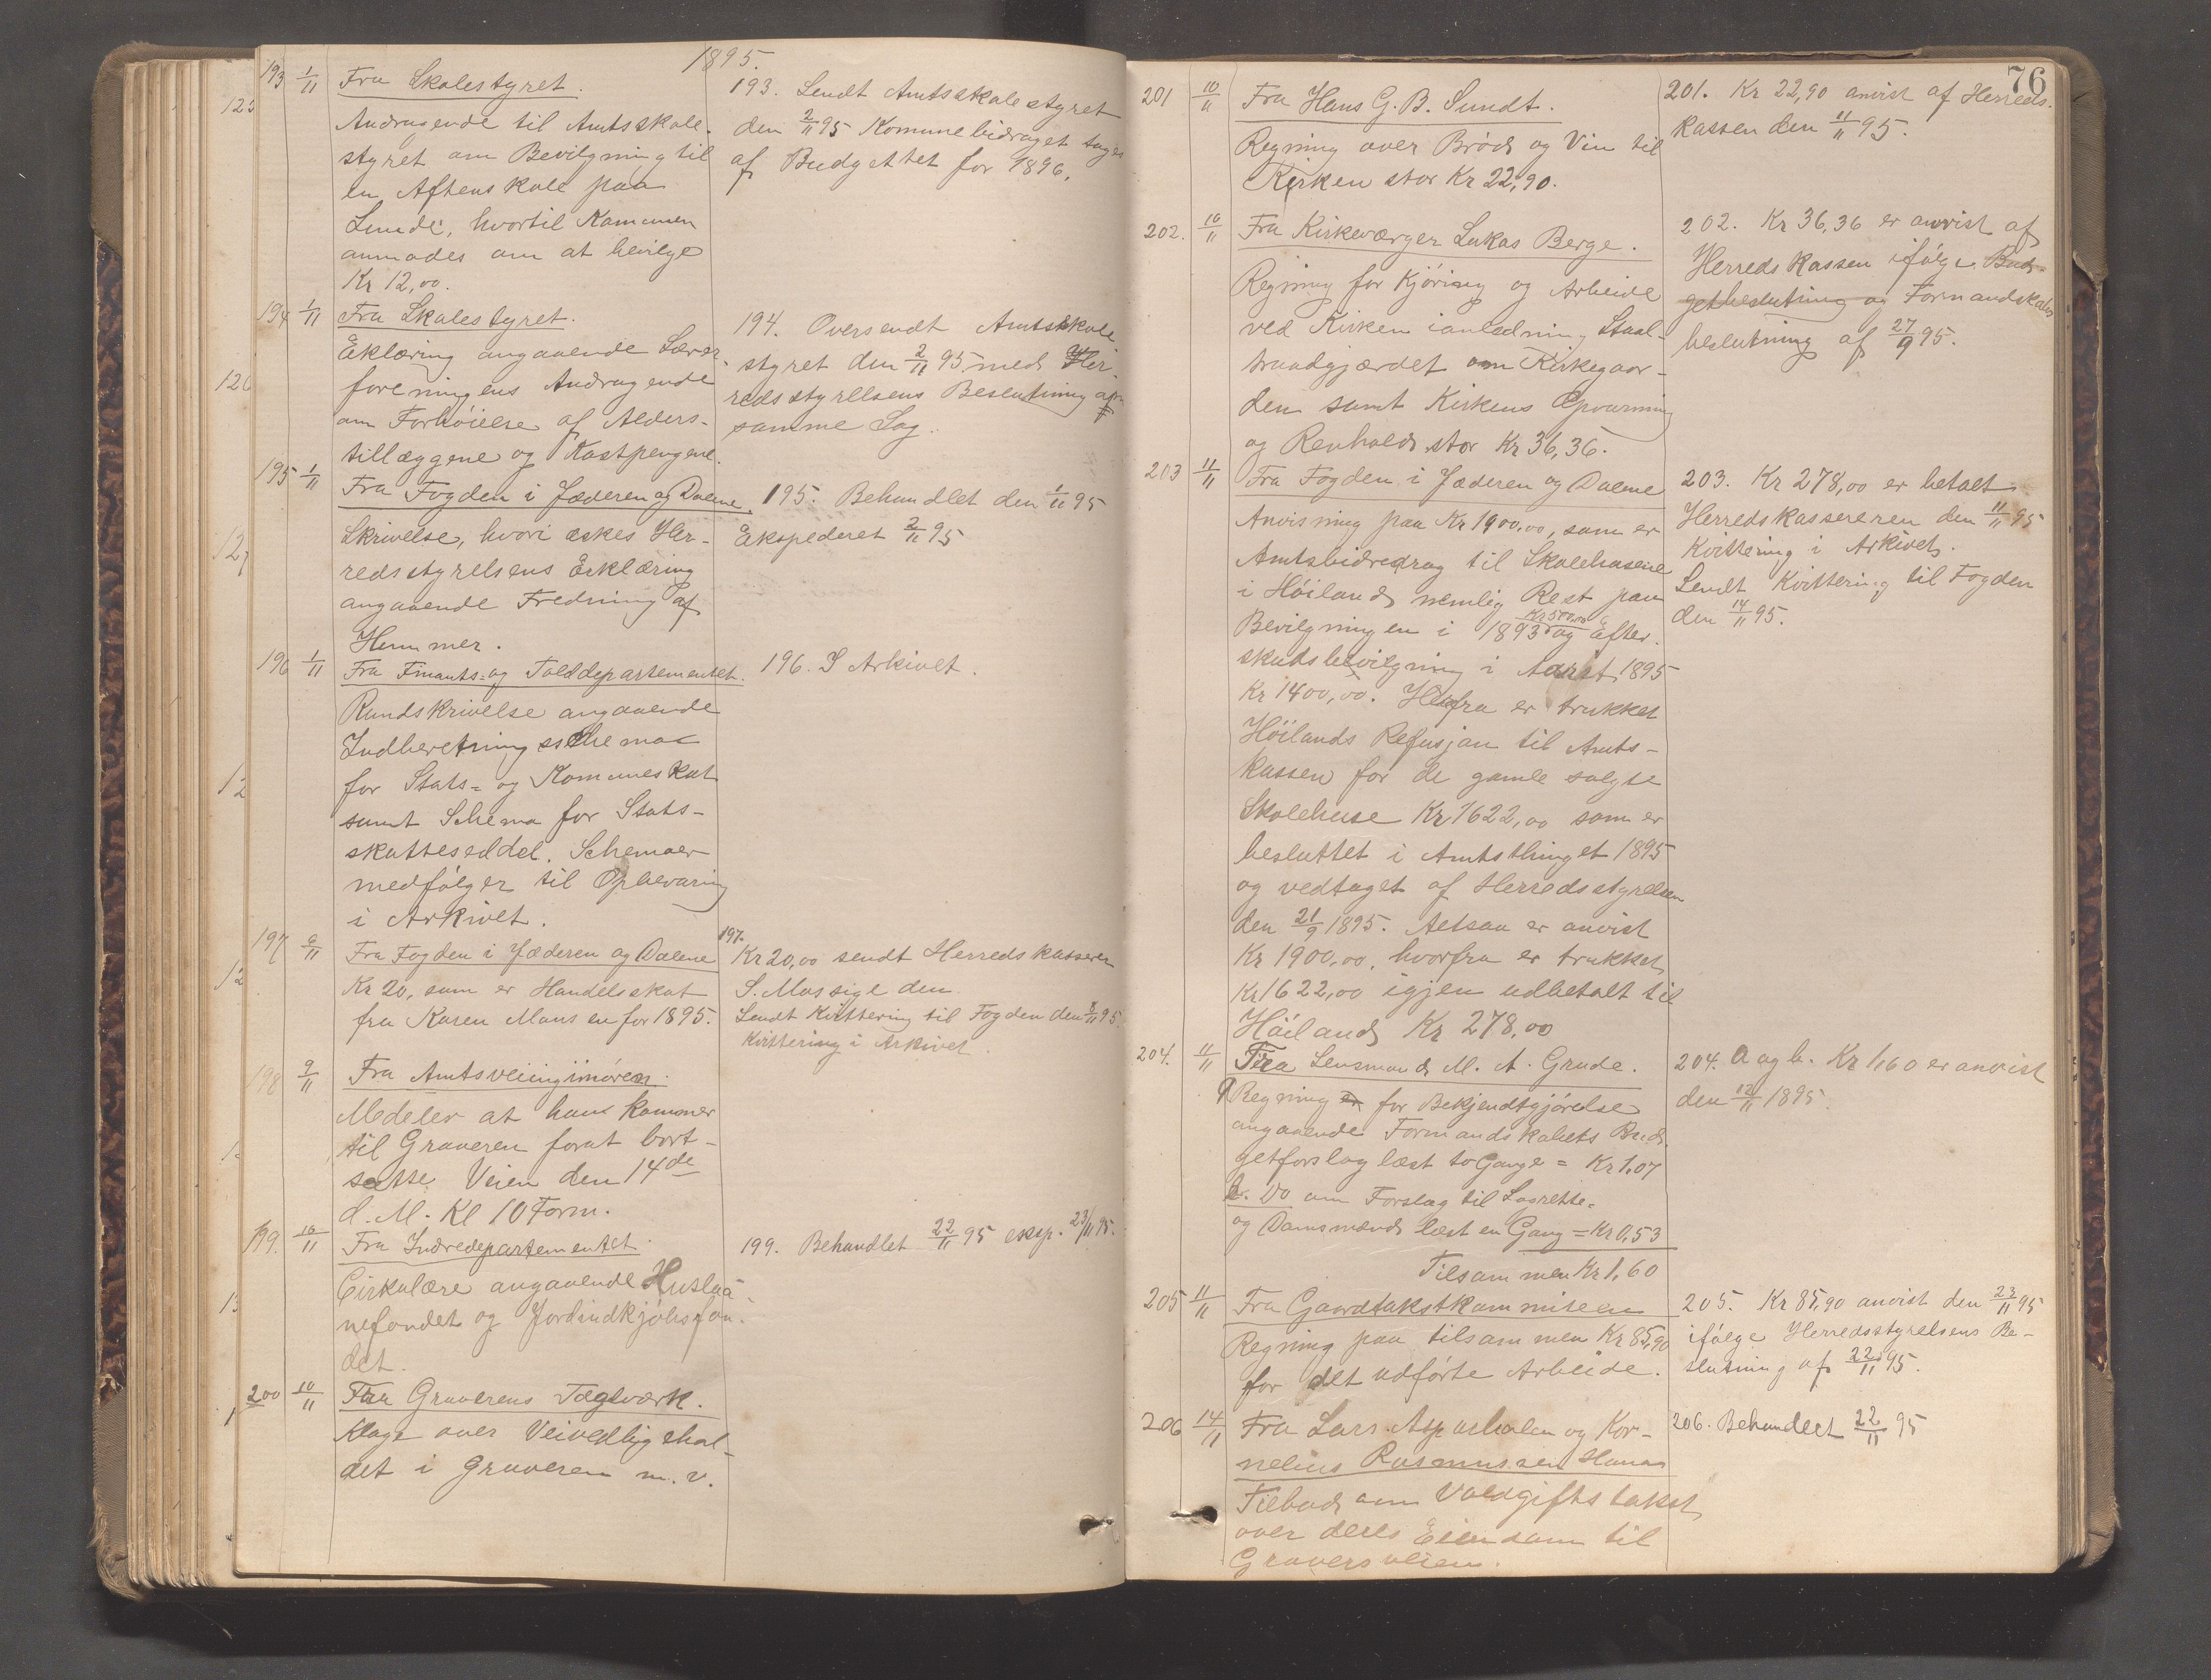 1895.
193 1/11 Fra Skolestyret.
Andragende til Amtsskole-
styret om Bevilgning til
en Aftenskole paa
Lunde, hvortil Kommunen
anmodes om at bevilge
Kr 12,00.
193. Sendt Amtsskolestyret
den 2/11 95 Komunebidraget tages
af Budgettet for 1896.
194 1/11 Fra Skolestyret.
Eklæring angaaende Lærer-
foreningens Andragende
om Forhöielse af Alders-
tillæggene og Kostpengene.
194. Oversendt Amtsskole
styret den 2/11 95 med Her-
redsstyrelsens Beslutning
samme Sag.
195 1/11 Fra Fogden i Jæderen og Dalene.
Skrivelse, hvori æskes Her-
redsstyrelsens Erklæring
angaaende Fredning af
Hummer.
195. Behandlet den 1/11 95
Ekspederet 2/11 95
196 1/11 Fra Finants- og Tolddepartementet.
Rundskrivelse angaaende
Indberetningsschema
for Stats- og Komuneskat
samt Schema for Stats-
skatteseddel. Schemaer
medfölger til Opbevaring
i Arkivet.
196. I Arkivet.
197 6/11 Fra Fogden i Jæderen og Dalene
Kr 20, som er Handelsskat
fra Karen Mausen for 1895.
197.
Kr 20,00 sendt Herredskasserer
S. Mossige den
Sendt Kvittering til Fogden den 8/11 95
Kvittering i Arkivet.
198 9/11 Fra Amtsveiinginiören.
Medeler at han kommer
til Graveren forat bort-
sætte Veien den 14de
d. M. Kl 10 Form.
199. 10/11 Fra Indredepartementet.
Cirkulære angaaende Huslaa-
nefondet og Jordindkjöbsfon-
det.
199. Behandlet 22/11 95 eksp. 23/11 95.
200 10/11 Fra Graverens Teglværk.
Klage over Veivedligehol-
det i Graveren m. v.
76
201 10/11 Fra Hans G. B. Sundt.
Regning over Bröd og Vin til
Kirken stor Kr 22,90.
201. Kr 22,90 anvist af Herreds-
kassen den 11/11 95.
202. 10/11 Fra Kirkeværger Lukas Berge.
Regning for Kjöring og Arbeide
ved Kirken ianledning Staal-
traadgjærdet om Kirkegaar-
den samt Kirkens Opvarming
og Renhold stor Kr 36,36.
202. Kr 36,36 er anvist af
Herredskassen ifölge Bud-
getbeslutning og Formandskabs
beslutning af 27/9 95.
203 11/11 Fra Fogden i Jæderen og Dalene
Anvisning paa Kr 1900,00, som er
Amtsbidredrag til Skolehusene
i Höiland, nemlig Rest paa
Kr 500,00
Bevilgningen i 1893 og efter-
skudsbevilgning i Aaret 1895
Kr 1400,00. Herfra er trukket
Höilands Refusjon til Amts-
kassen for de gamle solgte
Skolehuse Kr 1622,00 som er
besluttet i Amtsthinget 1895
og vedtaget af Herredsstyrelsen
den 21/9 1895. Aetsaa er anvist
Kr 1900,00, hvorfra er trukket
Kr 1622,00 igjen udbetalt til
Höiland Kr 278,00
203. Kr 278,00 er betalt
Herredskassereren den 11/11 95
Kvittering i Arkivet.
Sendt Kvittering til Fogden
den 14/11 95.
204. 11/11 Fra Lensmand M. A. Grude.
a Regning for Bekjendtgjörelse
angaaende Formandskabets Bud-
getforslag læst to Gange = Kr 1,07
b. Do om Forslag til Lagrette-
og Domsmænd læst en Gang = Kr 0,53
Tilsammen Kr 1,60
204. a og b. Kr 1,60 er anvist
den 12/11 1895.
205 11/11 Fra Gaardtakstkommiteen
Regning paa tilsammen Kr 85,90
for det udförte Arbeide.
205. Kr 85,90 anvist den 23/11 95
ifölge Herredsstyrelsens Be-
slutning af 22/11 95.
206 14/11 Fra Lars Asparholen og Kor-
nelius Rasmussen Hana
Tilbud om Voldgiftstakst
over deres Eiendom til
Graversveien.
206. Behandlet 22/11 95